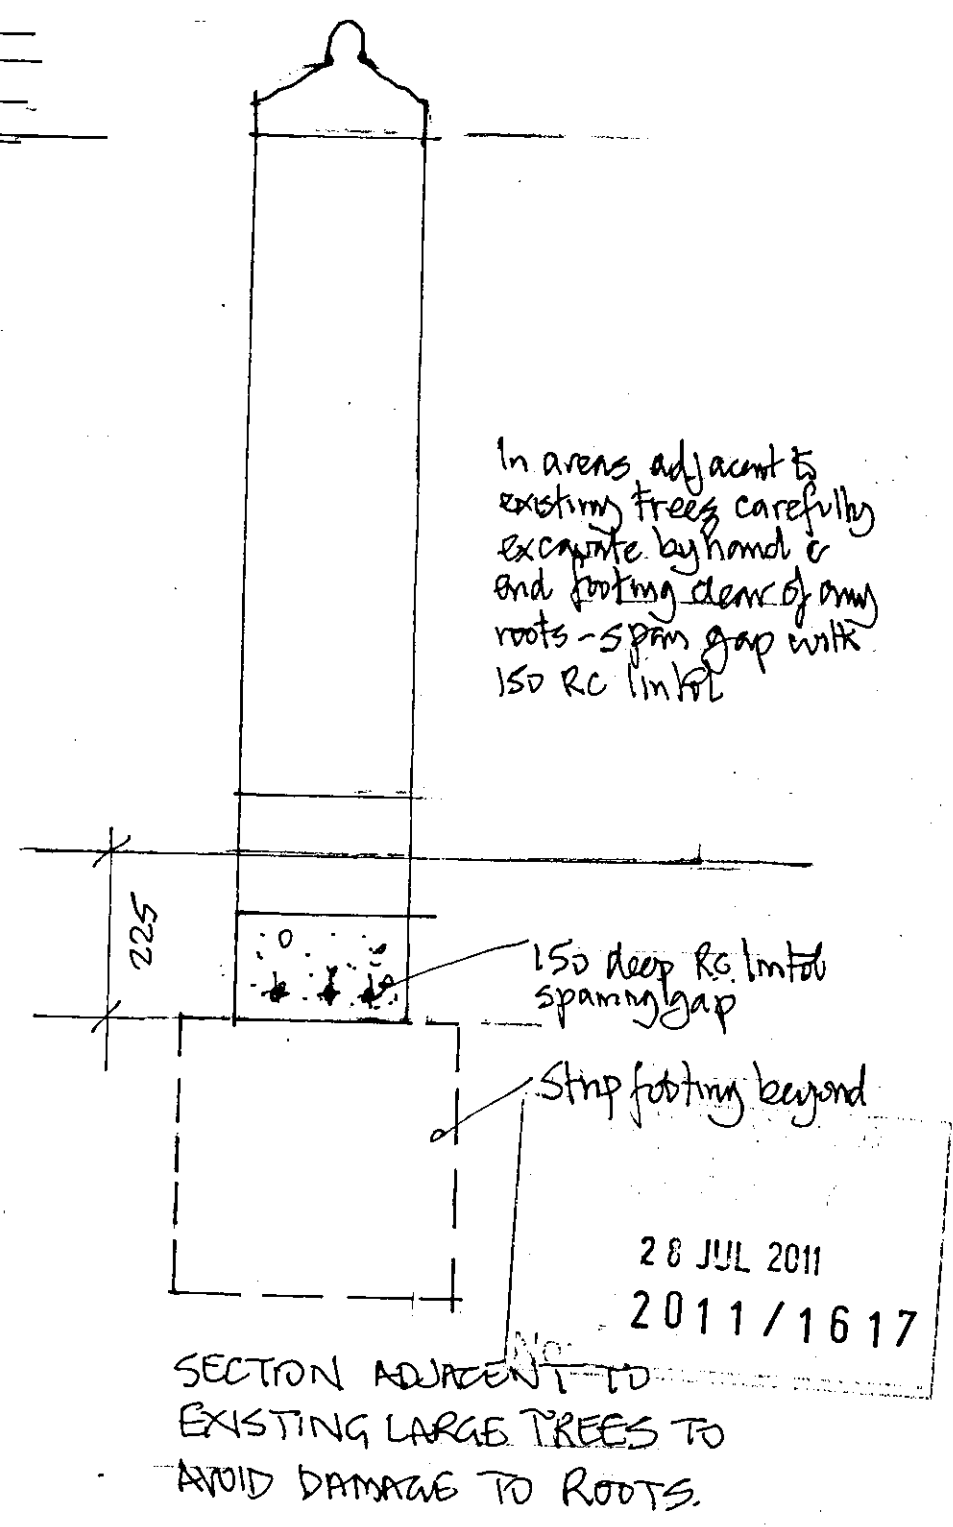 In areas adjacent to
existing trees carefully
excavate by hand &
end footing clear of any
roots - span gap with
150 RC lintol
225
150 deep RC. lintol
spanning gap
Strip footing beyond
28 JUL 2011
2011/1617
No:
SECTION ADJACENT TO
EXISTING LARGE TREES TO
AVOID DAMAGE TO ROOTS.